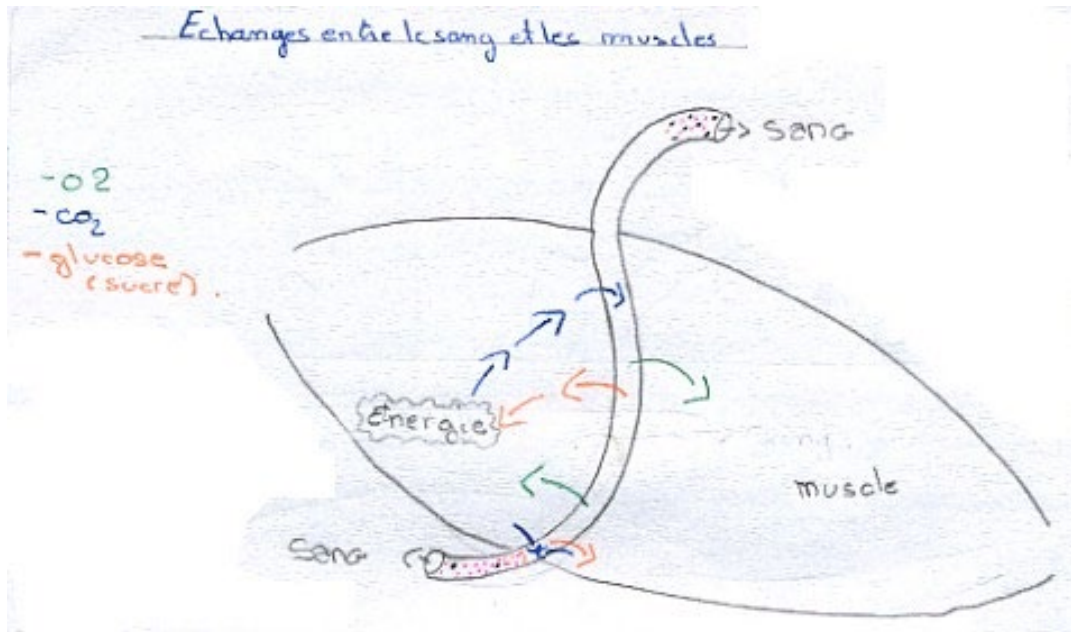 Echanges entre le sang et les muscles
sang
-O2
-CO2
-glucose
(sucre).
Energie
muscle
sang